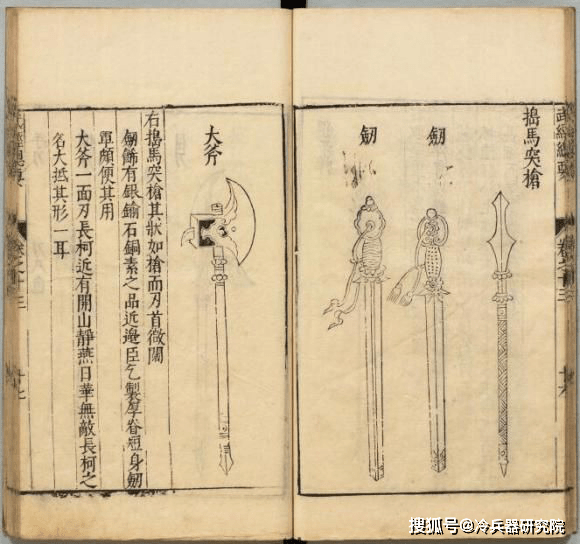 武經總要
搗馬突槍
劔
劔
大斧
右搗馬突槍其狀如槍而刃首微闊
劔飾有銀鍮石銅素之品近邊臣乞製厚脊短身劔
軍頗便其用
大斧一面刃長柯近有開山靜燕日華無敵長柯之
名大抵其形一耳
搜狐号@冷兵器研究院